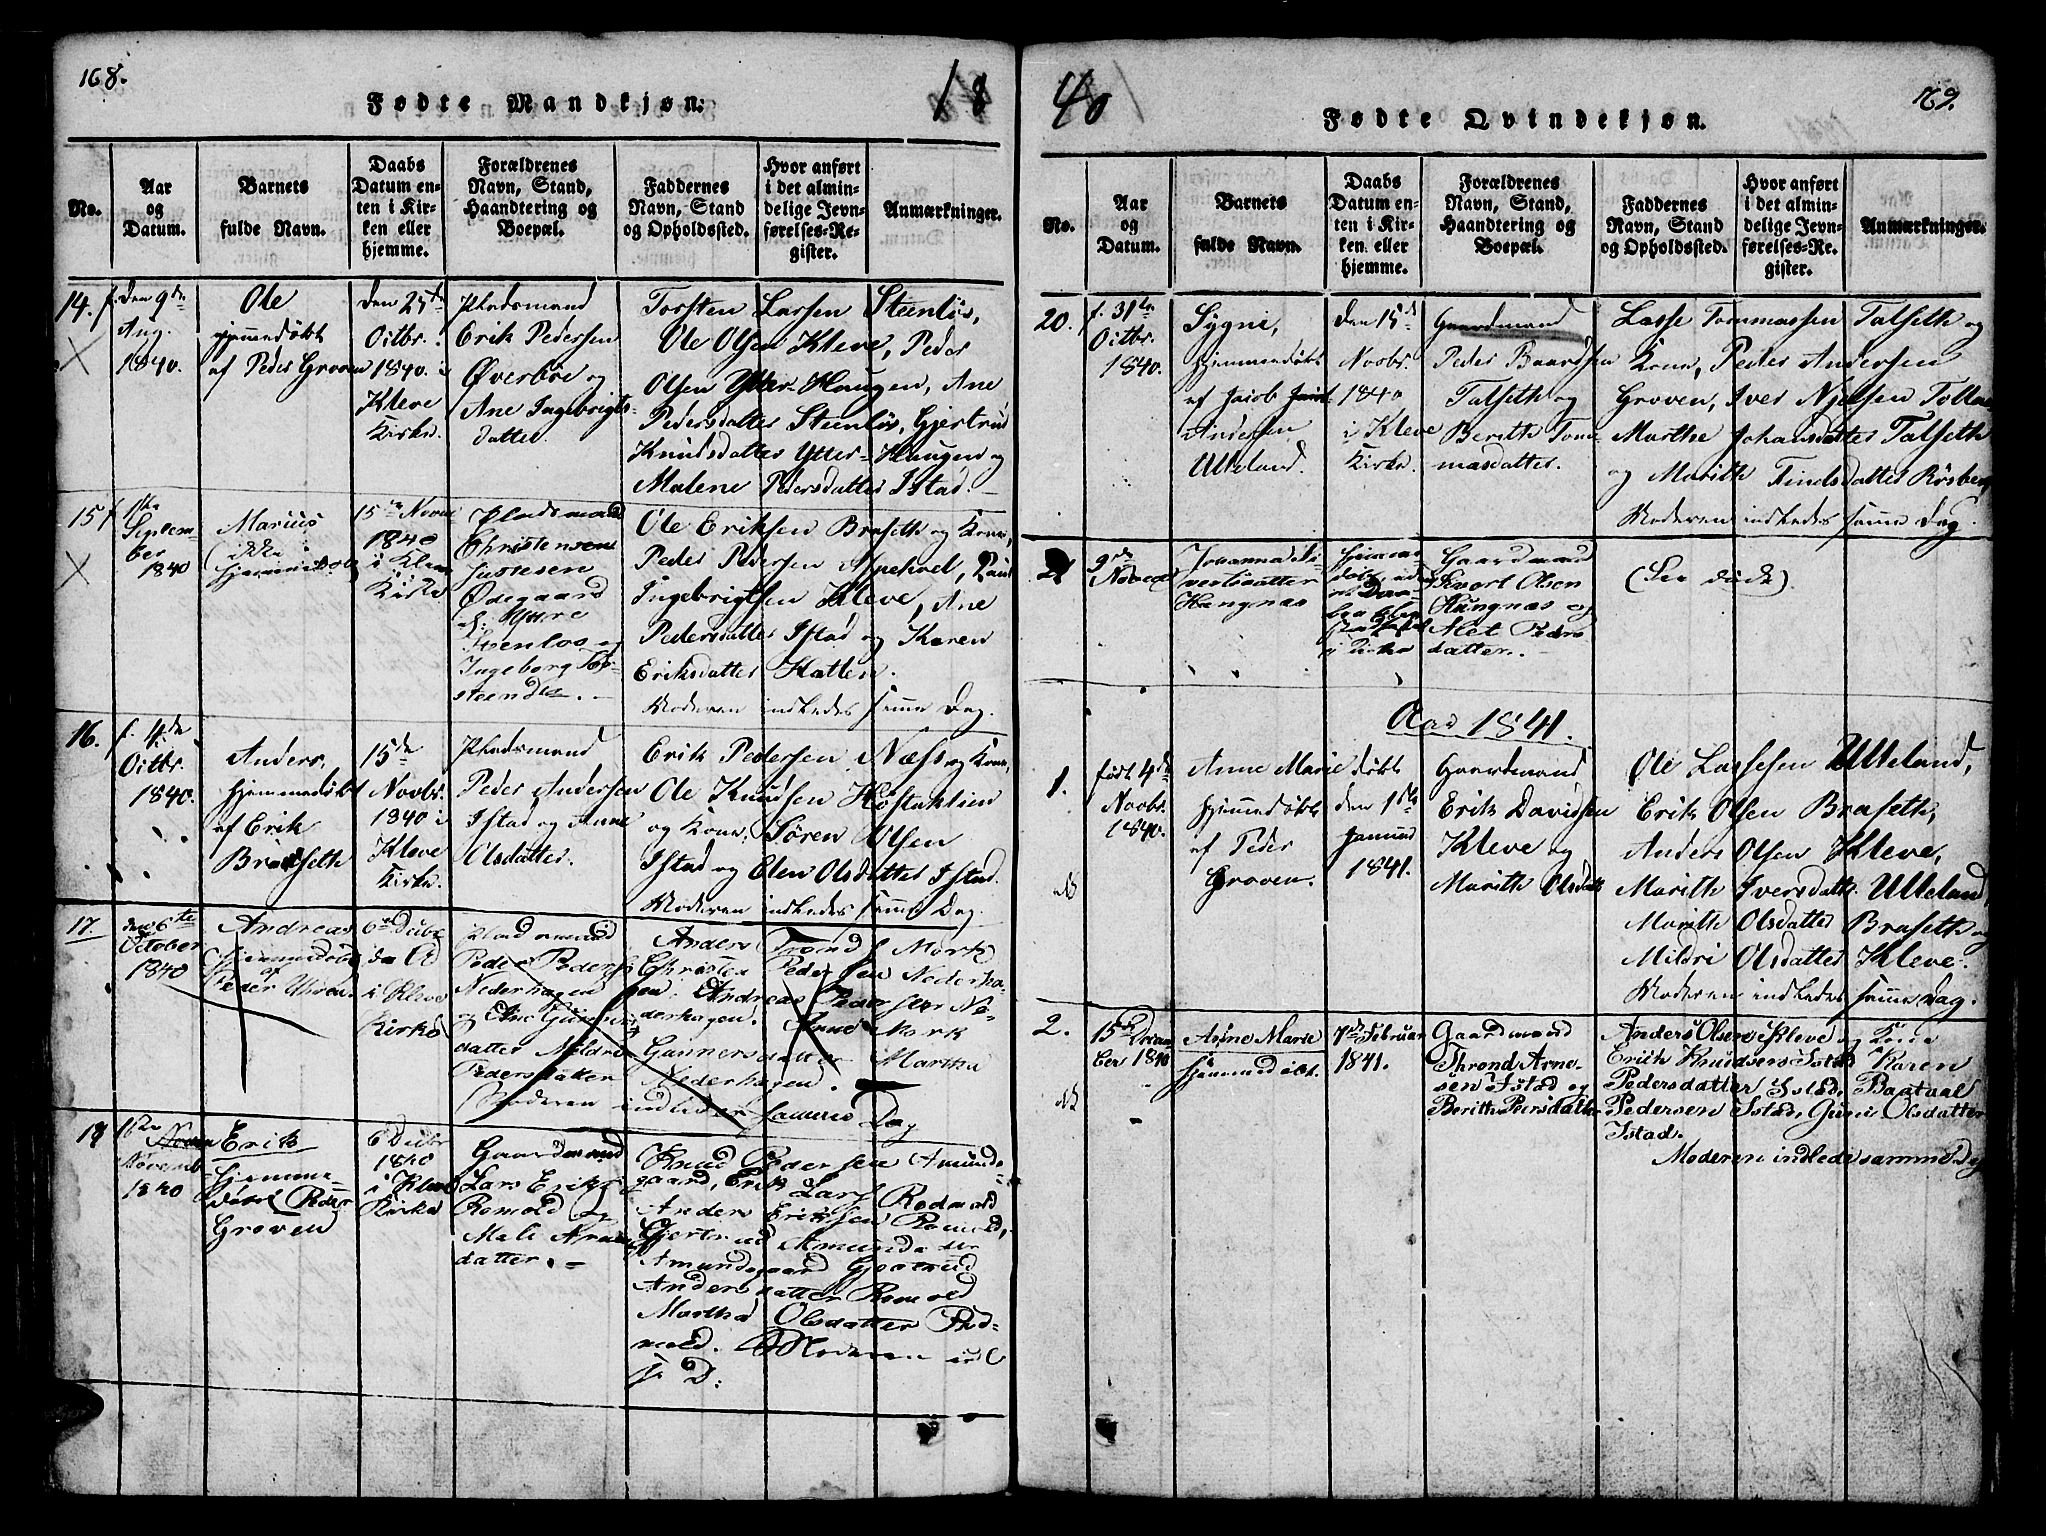 168.
18
Fødte Mandkjøn.
No.
Aar
og
Datum.
Barnets
fulde Navn.
Daabs
Datum en-
ten i Kir-
ken eller
hjemme.
Forældrenes
Navn, Stand,
Haandtering og
Boepæl.
Faddernes
Navn, Stand
og Opholdssted.
Hvor anført
i det almin-
delige Jevn-
førelses-Re-
gister.
Anmærkninger.
14.
f. den 9de
Aug.
1840.
Ole
hjemmedøbt
af Peder Groven
den 25de
Octbr.
1840 i
Kleve
Kirke.
Pladsmand
Erik Pedersen
Øverbøe og
Ane Ingebrigts-
datter.
Torsten Larsen Steenløs,
Ole Olsen Kleve, Peder
Olsen Ytter-Haugen, Ane
Pedersdatter Steenløs, Gjertrud
Knudsdatter Ytter-Haugen og
Malene Pedersdatter Istad.
15
f. 1te
Septem-
ber
1840
Marius
(ikke
hjemmedøbt)
15de Novbr
1840
i Kleve
Kirke
Pladsmand
Christensen
Justesen
Ødegaard
Yttre
Steenløs og
Ingeborg Tor-
steensdtr.
Ole Eriksen Braseth og Kone,
Peder Pedersen
Ingebrigtsen Kleve, Ane
Pedersdatter Istad og Karen
Eriksdatter Hatten.
Moderen indledes samme Dag.
16.
f. 4de
Octbr.
1840.
Anders,
hjemmedøbt
af Erik
Braseth
15de
Novbr.
1840 i
Kleve
Kirke.
Pladsmand
Peder Andersen
Istad og Anne
Olsdatter.
Erik Pedersen Næss og Kone,
Ole Knudsen
og Kone, Søren Olsen
Istad og Elen Olsdatter Istad.
Moderen indledes samme Dag.
17.
den 6te
October
1840
Andreas
hjemmedøbt
af
Peder
6te Decbr
i Kleve
Kirke
Pladsmand
Peder Peders-
Nederhagen
og Ane Gunners-
datter Mildri
Pedersdatter
Anders Trond s Mork
Christen Pedersen Nederha-
gen. Andreas Pedersen Ne-
derhagen. Anne Mork
Gunnersdatter Martha
Nederhagen.
(Moderen indleder samme Dag
18
16de
Novemb
1840
Erik
hjemme-
døbt (Peder
Groven
6 Decbr
1840
i Kleve
Kirke
Gaardmand
Lars Eriks
Romold og
Mali Arnes
datter.
Knud Pedersen Amunds-
gaard, Erik Lars Rodmold
Anders Eriksen Romold,
Gjertrud Amundsdtr
Amundsgaard Gjertrud
Andersdatter Romold
Martha Olsdatter Rod-
mold. Moderen indl
s D.
40
169.
Fødte Qvindekjøn.
No.
Aar
og
Datum.
Barnets
fulde Navn.
Daabs
Datum en-
ten i Kir-
ken eller
hjemme.
Forældrenes
Navn, Stand,
Haandtering og
Boepæl.
Faddernes
Navn, Stand
og Opholdssted.
Hvor anført
i det almin-
delige Jevn-
førelses-Re-
gister.
Anmærkninger.
20.
f. 31te
Octbr.
1840.
Sygni,
hjemmedøbt
af Jacob
Andersen
Ulleland.
den 15d
Novbr.
1840
i Kleve
Kirke.
Gaardmand
Peder Baardsen
Talseth og
Berith Tom-
masdatter.
Lasse Tommassen Talseth og
Kone, Peder Andersen
Groven, Iver Njelsen Tollaas
Marthe Johansdatter Talseth
og Marith Findsdatter Røsberg
Moderen indledes samme Dag.
21
9de
Novbr
Johanna Si-
vertsdatter
Hangnæs
Gaardmand
Sivert Olsen
Hangnæs og
Met Peders
datter.
(See døde).
Aar 1841.
1.
født 4de
Novbr.
1840.
Anne Marie
hjemmedøbt
af Peder
Groven.
døbt
den 1ste
Januar
1841.
Gaardmand
Erik Davidsen
Kleve og
Marith Olsdatt
Ole Lassesen Ulleland,
Erik Olsen Braseth,
Anders Olsen Kleve,
Marith Iversdatt. Ulleland,
Marith Olsdatter Braseth og
Mildri Olsdatter Kleve.
Moderen indledes samme Dag.
2.
15de Decem
ber 1840
Anne Marie
hjemmedøbt.
7de Februar
1841.
Gaardmand
Thrond Arne-
sen Istad og
Berithe Peersdatter
Anders Olsen Kleve og Kone
Erich Knudsen Istad Karen
Pedersdatter Istad, Baataal
Pedersen Istad, Guri Olsdatter
Istad.
Moderen indlede samme Dag